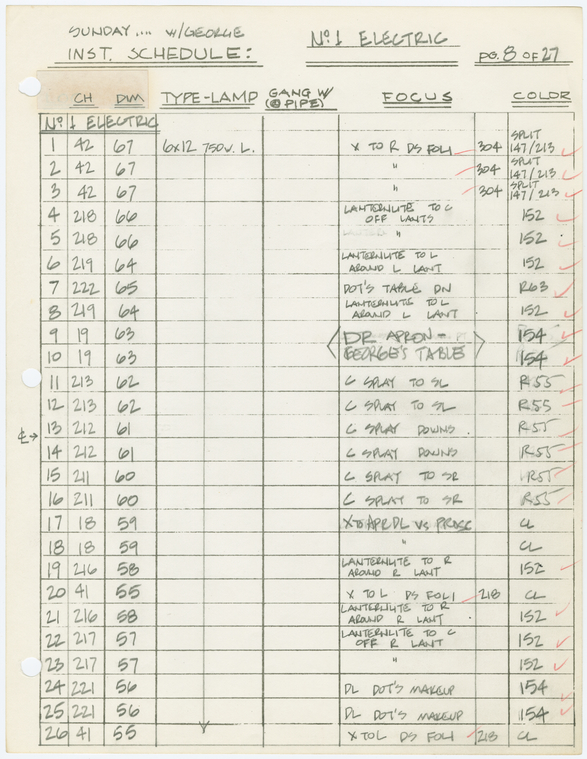 SUNDAY.... W/GEORGE
INST. SCHEDULE:
Nº1 ELECTRIC
PG. 8 OF 27
CH DIM TYPE-LAMP GANG W/ (@ PIPE) FOCUS COLOR
Nº1 ELECTRIC
1 42 67 6x12 750W. L. X TO R DS FOLI 304 SPLIT 147/213
2 42 67 " 304 SPLIT 147/213
3 42 67 " 304 SPLIT 147/213
4 218 66 LANTERNLITE TO C OFF LANTS 152
5 218 66 " 152
6 219 64 LANTERNLITE TO L AROUND L LANT 152
7 222 65 DOT'S TABLE DN R63
8 219 64 LANTERNLITE TO L AROUND L LANT 152
9 19 63 DR APRON - 154
10 19 63 GEORGE'S TABLE 154
11 213 62 C SPLAY TO SL R55
12 213 62 C SPLAY TO SL R55
13 212 61 C SPLAY DOWNS R55
14 212 61 C SPLAY DOWNS R55
15 211 60 C SPLAY TO SR R55
16 211 60 C SPLAY TO SR R55
17 18 59 X TO APR DL VS PROSC CL
18 18 59 " CL
19 216 58 LANTERNLITE TO R AROUND R LANT 152
20 41 55 X TO L DS FOLI 218 CL
21 216 58 LANTERNLITE TO R AROUND R LANT 152
22 217 57 LANTERNLITE TO C OFF R LANT 152
23 217 57 " 152
24 221 56 DL DOT'S MAKEUP 154
25 221 56 DL DOT'S MAKEUP 154
26 41 55 X TO L DS FOLI 218 CL